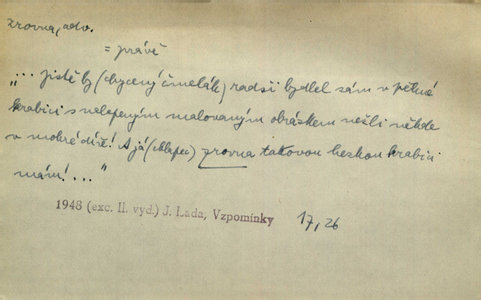 zrovna, adv.
= právě
„... Jistě by (chycený čmelák) radši bydlel sám v pěkné
krabici s nalepeným malovaným obrázkem nežli někde
v mokré díže! A já (chlapec) zrovna takovou hezkou krabici
mám! ..."
1948 (exc. II. vyd.) J. Lada, Vzpomínky 17, 26